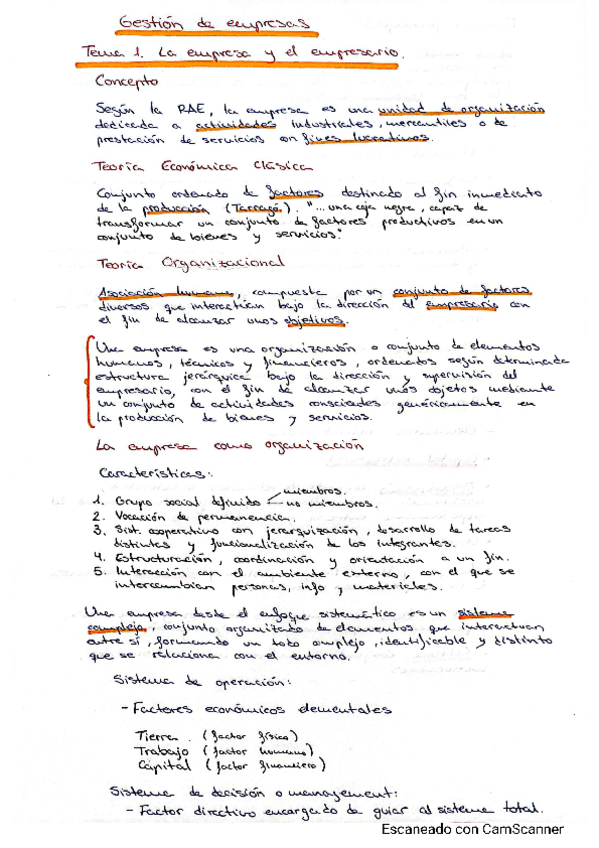 Gestión de empresas
Tema 1. La empresa y el empresario.
Concepto
Según la RAE, la empresa es una unidad de organización
dedicada a actividades industriales, mercantiles o de
prestación de servicios con fines lucrativos.
Teoría Económica Clásica
Conjunto ordenado de factores destinado al fin inmediato
de la producción (Tarragó). "...una caja negra, capaz de
transformar un conjunto de factores productivos en un
conjunto de bienes y servicios."
Teoría Organizacional
Asociación humana, compuesta por un conjunto de factores
diversos que interactúan bajo la dirección del empresario con
el fin de alcanzar unos objetivos.
Una empresa es una organización o conjunto de elementos
humanos, técnicos y financieros, ordenados según determinada
estructura jerárquica bajo la dirección y supervisión del
empresario, con el fin de alcanzar unos objetos mediante
un conjunto de actividades consciadas genéricamente en
la producción de bienes y servicios.
La empresa como organización
Características:
1. Grupo social definido miembros.
no miembros.
2. Vocación de permanencia.
3. Sist. cooperativo con jerarquización, desarrollo de tareas
distintas y funcionalización de los integrantes.
4. Estructuración, coordinación y orientación a un fin.
5. Interacción con el ambiente externo, con el que se
intercambian personas, info y materiales.
Una empresa desde el enfoque sistemático es un sistema
complejo, conjunto organizado de elementos que interactuan
entre sí, formando un todo complejo, identificable y distinto
que se relaciona con el entorno.
Sistema de operación:
- Factores económicos elementales
Tierra (factor físico)
Trabajo (factor humano)
Capital (factor financiero)
Sistema de decisión o management:
- Factor directivo encargado de guiar al sistema total.
Escaneado con CamScanner